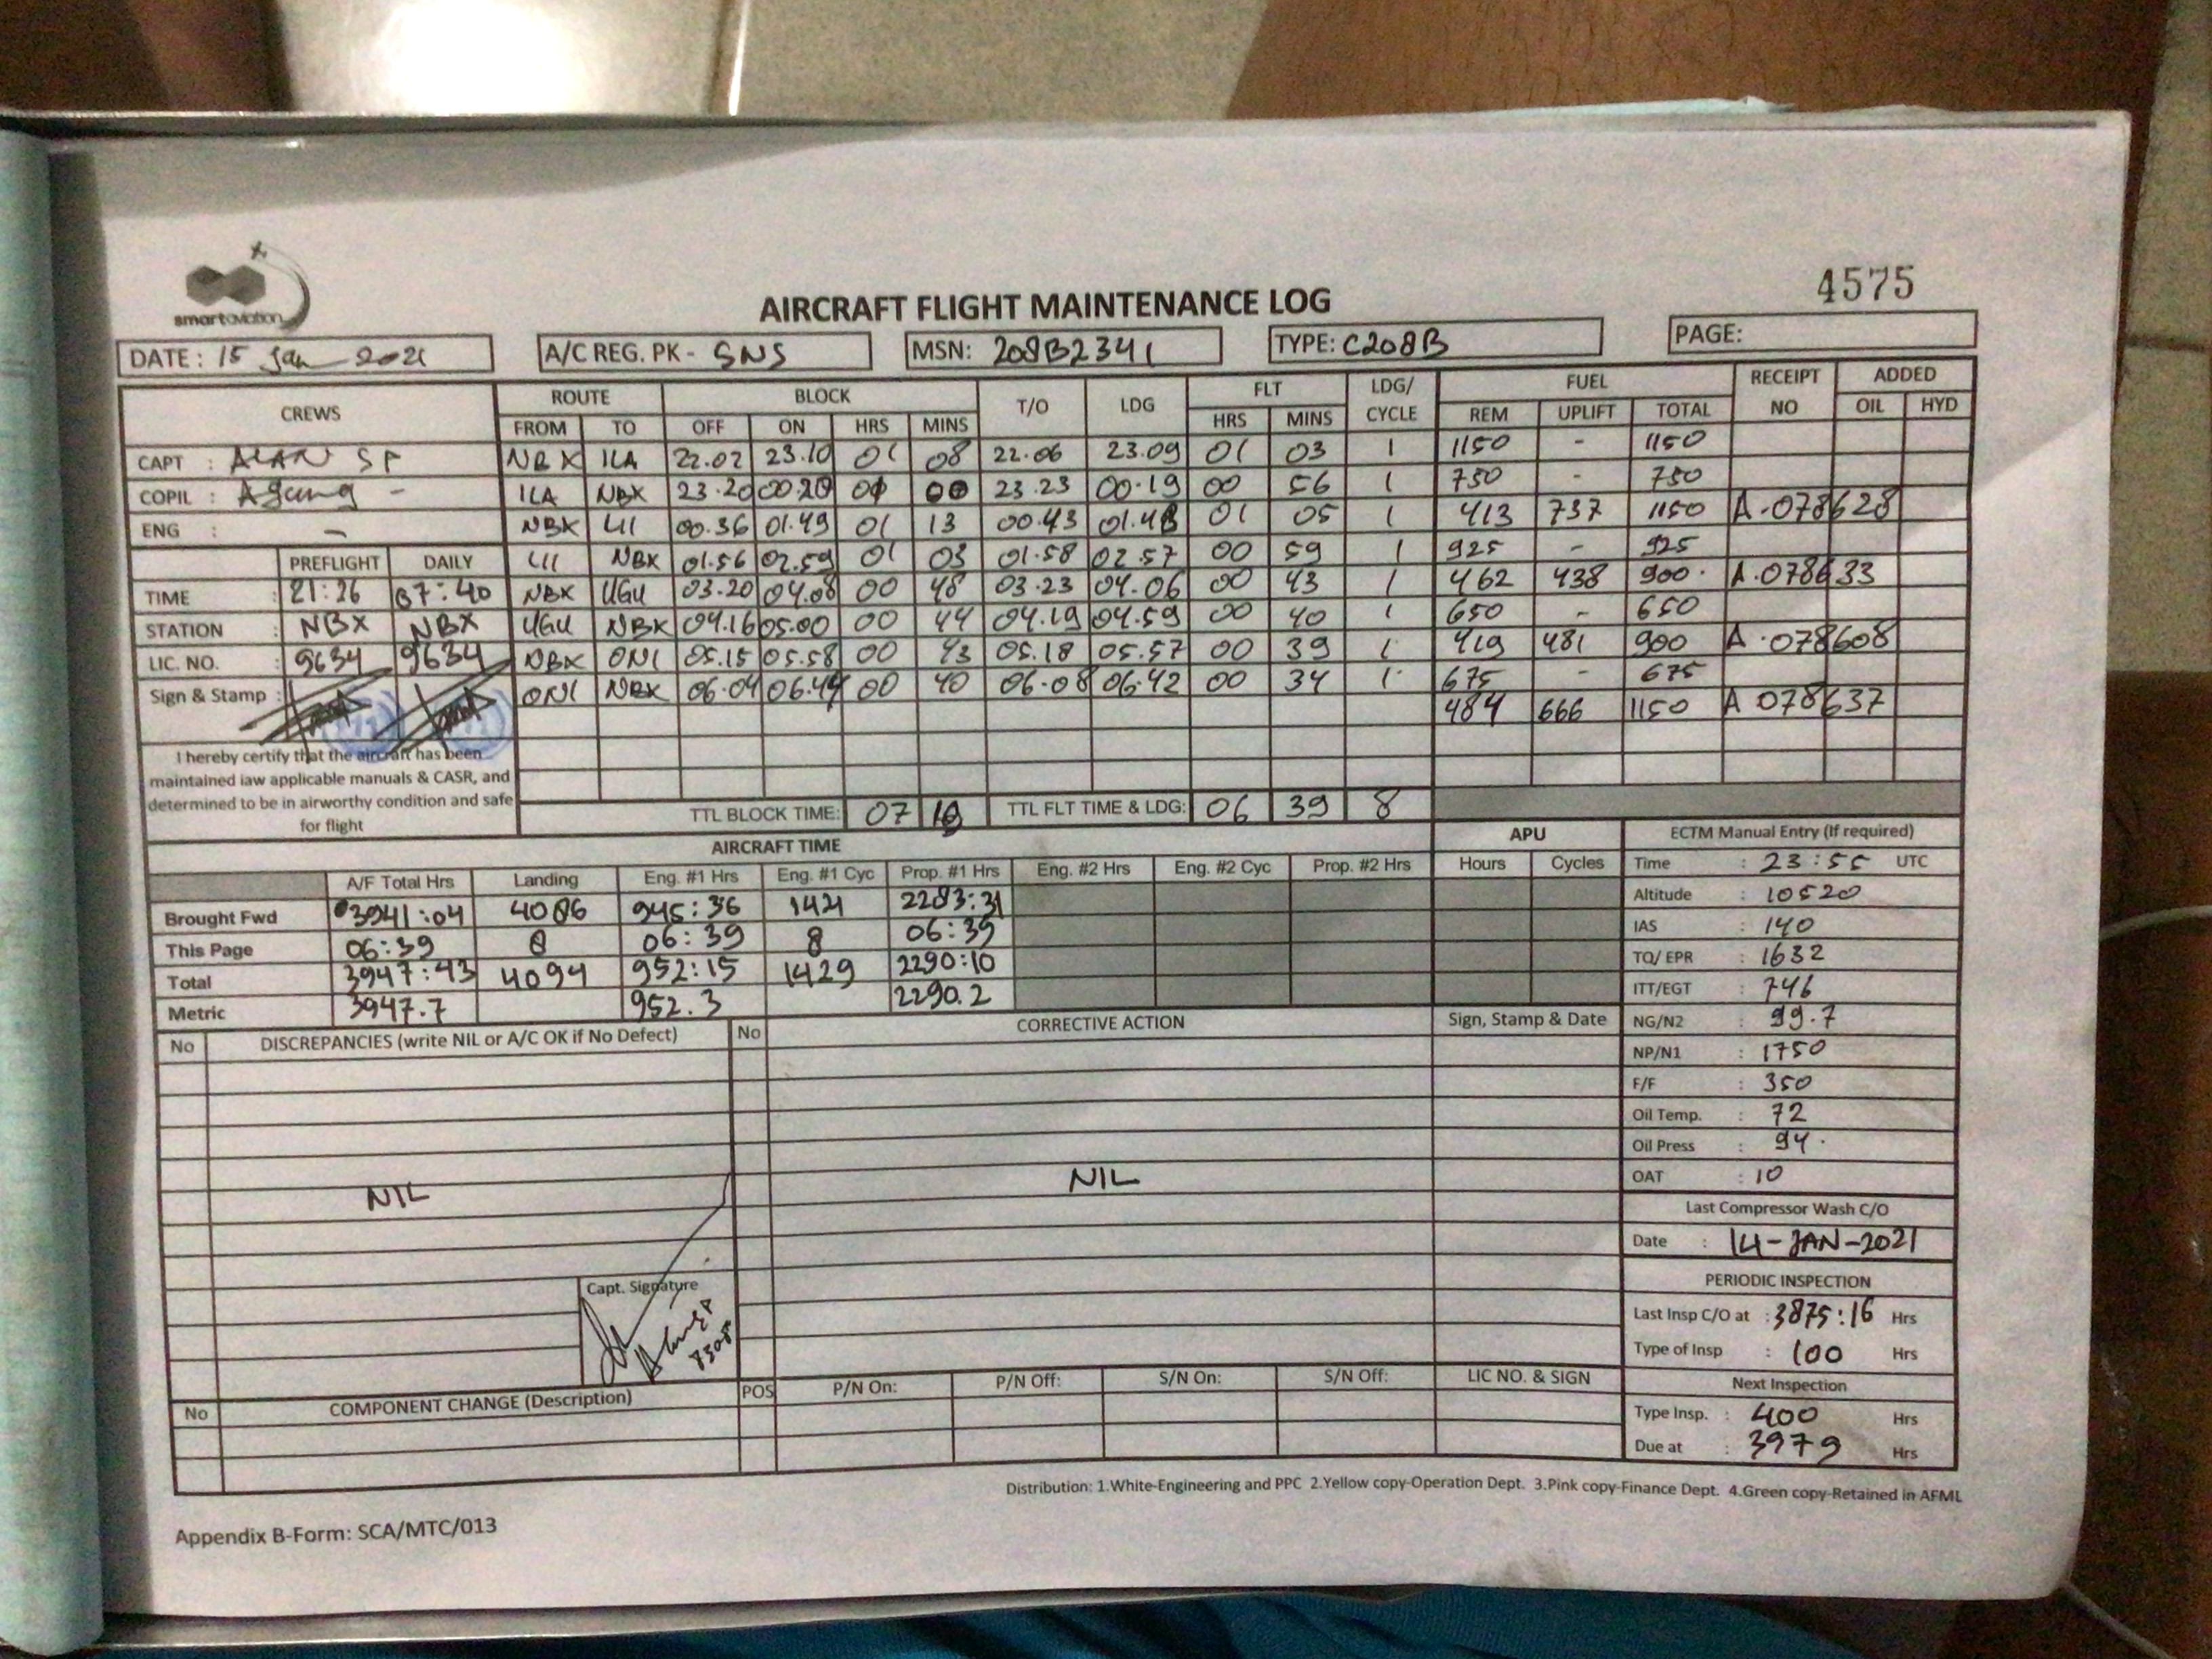 smartaviation
4575
AIRCRAFT FLIGHT MAINTENANCE LOG
DATE: 15 Jan 2021 A/C REG. PK - SNS MSN: 208B2341 TYPE: C208B PAGE:
CREWS ROUTE BLOCK T/O LDG FLT LDG/ CYCLE FUEL RECEIPT NO ADDED
FROM TO OFF ON HRS MINS HRS MINS REM UPLIFT TOTAL OIL HYD
CAPT : ALAN SP NBX ILA 22.02 23.10 01 08 22.06 23.09 01 03 1 1150 - 1150
COPIL : Agung - ILA NBX 23.20 00.20 00 23.23 00.19 00 56 1 750 - 750
ENG : - NBX LII 00.36 01.49 01 13 00.43 01.48 01 05 1 413 737 1150 A.078628
PREFLIGHT DAILY LII NBX 01.56 02.59 01 03 01.58 02.57 00 59 1 925 - 925
TIME : 21:26 07:40 NBX UGU 03.20 04.08 00 48 03.23 04.06 00 43 1 462 438 900 A.078633
STATION : NBX NBX UGU NBX 04.16 05.00 00 44 04.19 04.59 00 40 1 650 - 650
LIC. NO. : 9634 9634 NBX ONI 05.15 05.58 00 43 05.18 05.57 00 39 1 419 481 900 A.078608
Sign & Stamp : ONI NBX 06.04 06.44 00 40 06.08 06.42 00 34 1 675 - 675
484 666 1150 A 078637
I hereby certify that the aircraft has been
maintained iaw applicable manuals & CASR, and
determined to be in airworthy condition and safe
for flight
TTL BLOCK TIME: 07 19 TTL FLT TIME & LDG: 06 39 8
AIRCRAFT TIME APU ECTM Manual Entry (If required)
A/F Total Hrs Landing Eng. #1 Hrs Eng. #1 Cyc Prop. #1 Hrs Eng. #2 Hrs Eng. #2 Cyc Prop. #2 Hrs Hours Cycles Time : 23:55 UTC
Brought Fwd 3941:04 4086 945:36 1421 2283:31 Altitude : 10520
This Page 06:39 8 06:39 8 06:39 IAS : 140
Total 3947:43 4094 952:15 1429 2290:10 TQ/ EPR : 1632
Metric 3947.7 952.3 2290.2 ITT/EGT : 746
No DISCREPANCIES (write NIL or A/C OK if No Defect) No CORRECTIVE ACTION Sign, Stamp & Date NG/N2 : 99.7
NP/N1 : 1750
F/F : 350
Oil Temp. : 72
Oil Press : 94
NIL NIL OAT : 10
Last Compressor Wash C/O
Date : 14-JAN-2021
Capt. Signature PERIODIC INSPECTION
Last Insp C/O at : 3875:16 Hrs
Type of Insp : 100 Hrs
No COMPONENT CHANGE (Description) POS P/N On: P/N Off: S/N On: S/N Off: LIC NO. & SIGN Next Inspection
Type Insp. : 400 Hrs
Due at : 3979 Hrs
Distribution: 1.White-Engineering and PPC 2.Yellow copy-Operation Dept. 3.Pink copy-Finance Dept. 4.Green copy-Retained in AFML
Appendix B-Form: SCA/MTC/013